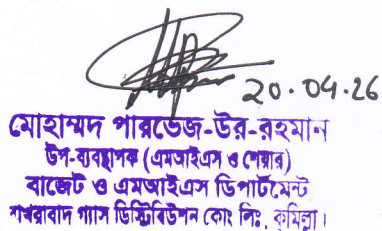 20.04.26
মোহাম্মদ পারভেজ-উর-রহমান
উপ-ব্যবস্থাপক (এমআইএস ও শেয়ার)
বাজেট ও এমআইএস ডিপার্টমেন্ট
গ্যাস ডিস্ট্রিবিউশন কোং লিঃ, কুমিল্লা।